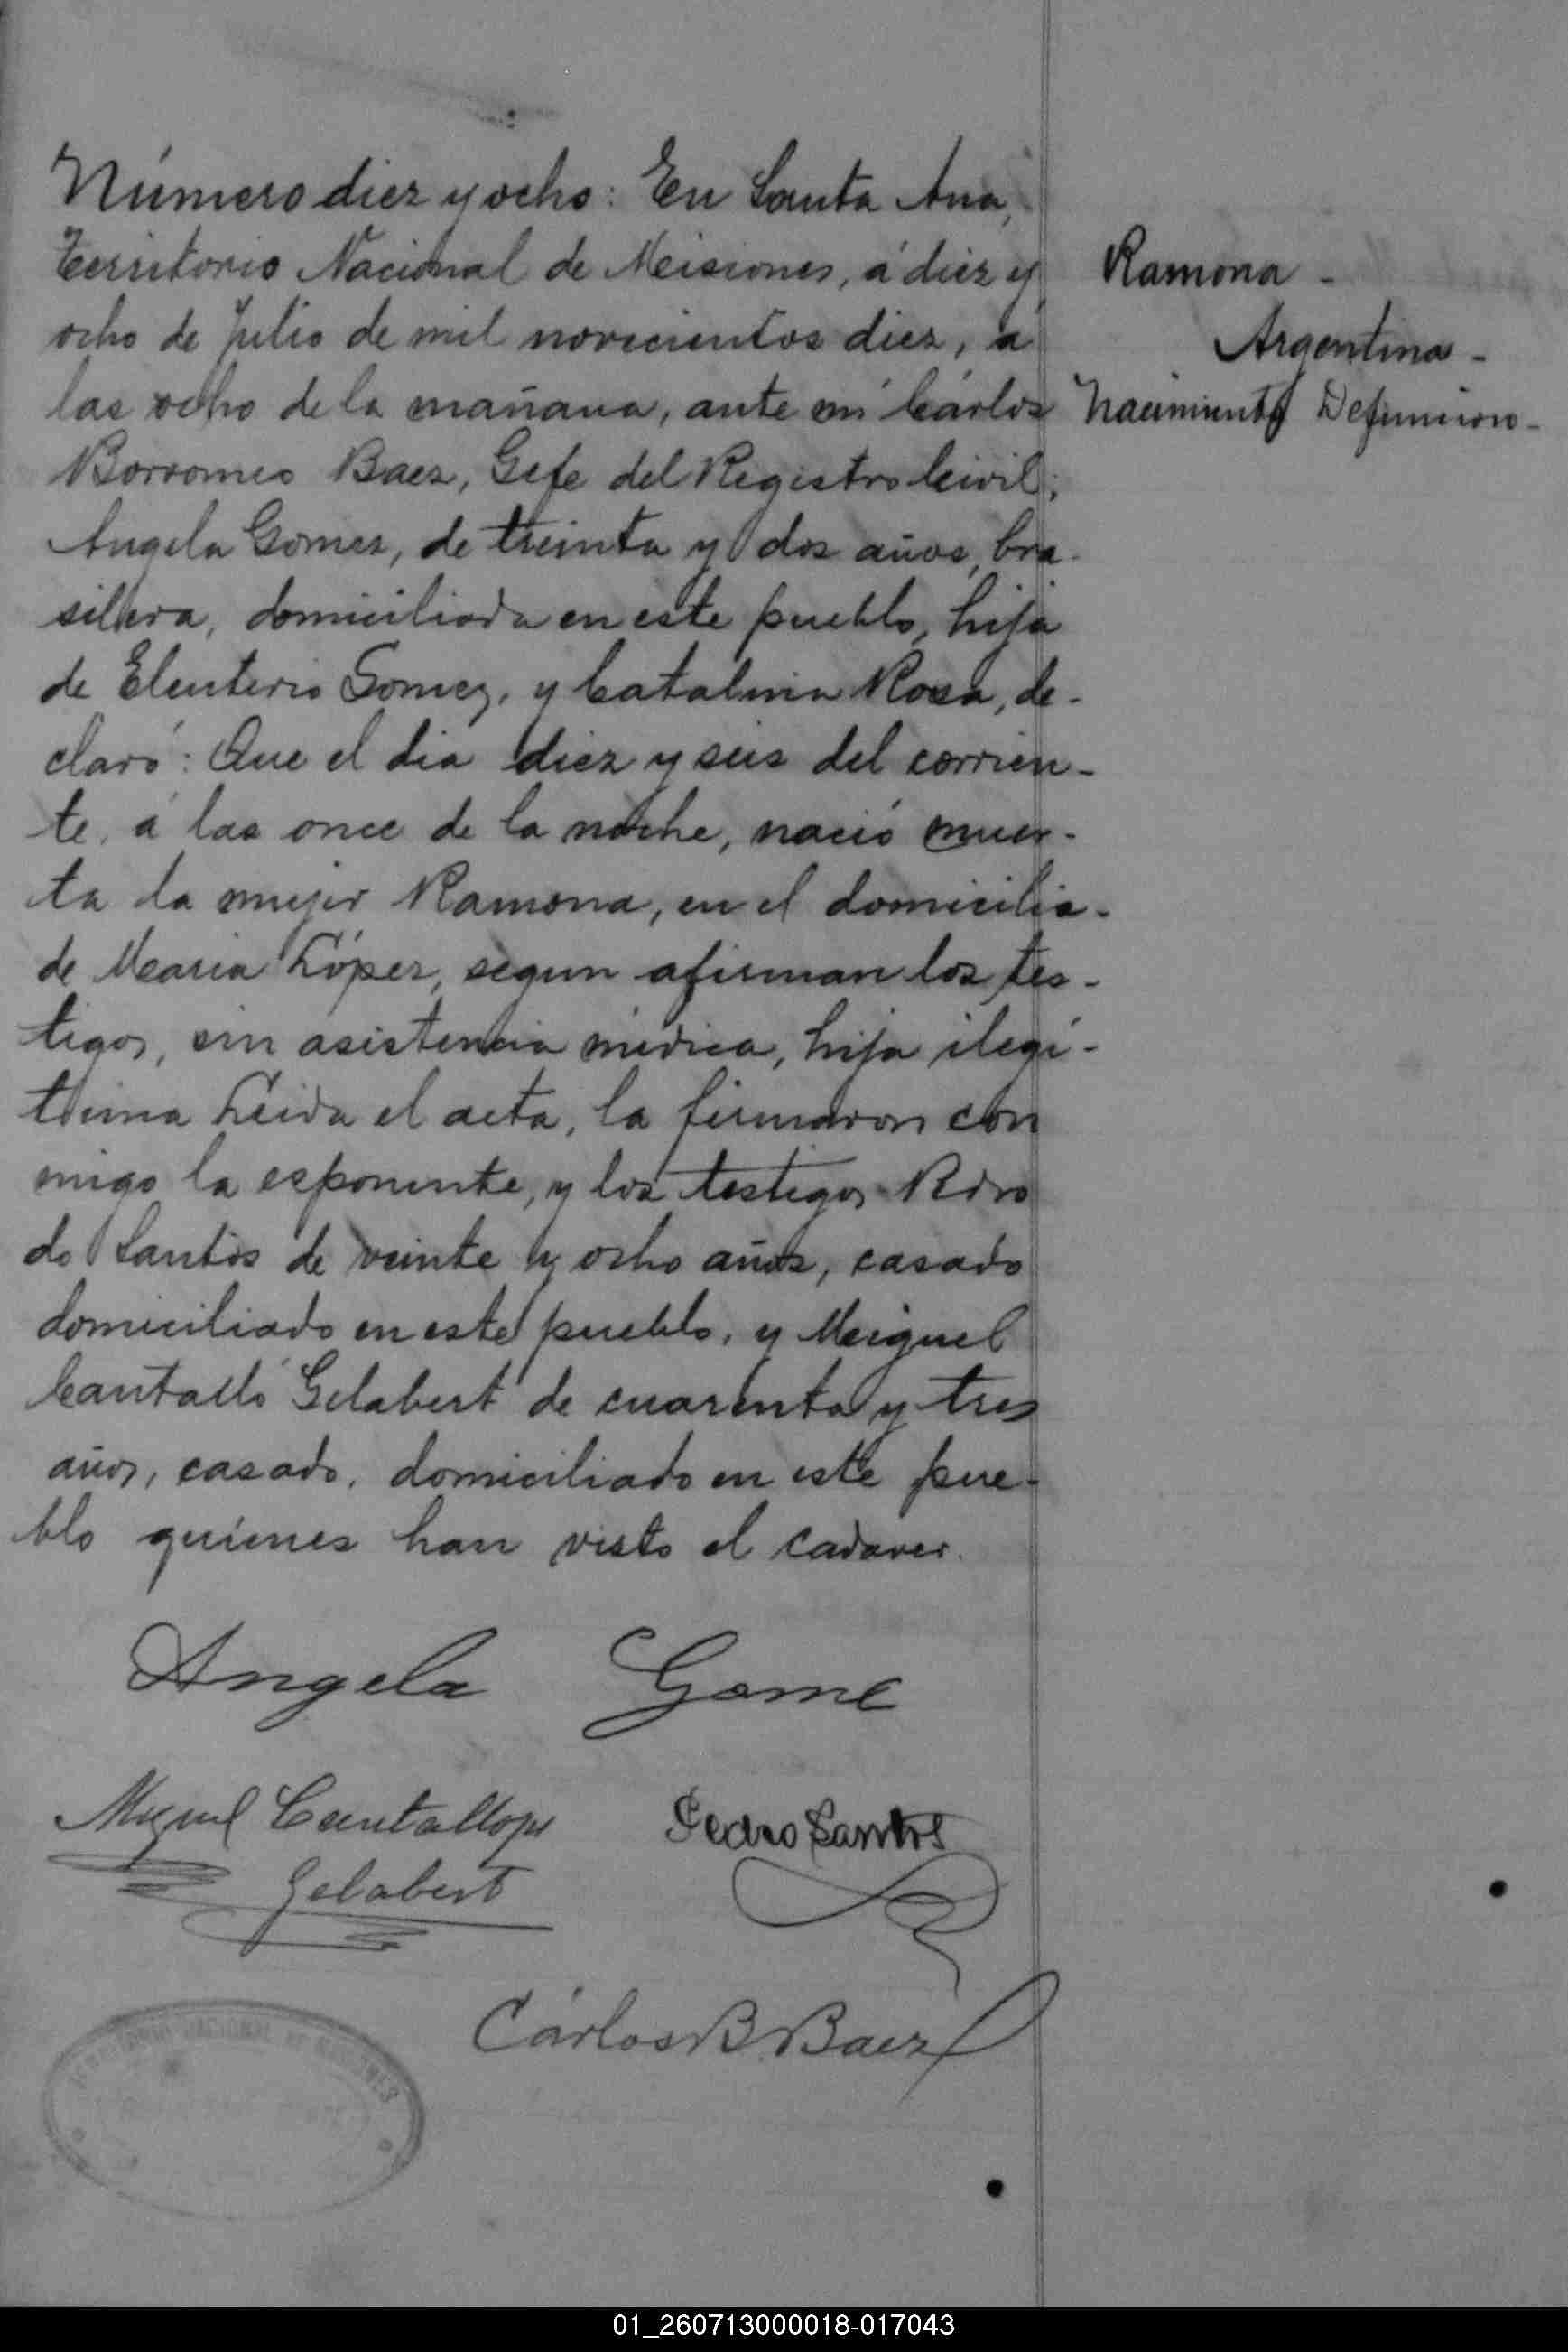 Número diez y ocho: En Santa Ana,
Territorio Nacional de Misiones, á diez y
ocho de Julio de mil novecientos diez, á
las ocho de la mañana, ante mi Cárlos
Borromeo Baez, Gefe del Registro Civil;
Angela Gomez, de treinta y dos años, bra-
silera, domiciliada en este pueblo, hija
de Eleuterio Gomez, y Catalina Rosa, de-
claró: Que el dia diez y seis del corrien-
te, á las once de la noche, nació muer-
ta la mujer Ramona, en el domicilio-
de Maria López, segun afirman los tes-
tigos, sin asistencia médica, hija ilegí-
tima Leida el acta, la firmaron con
migo la esponente, y los testigos
do Santos de veinte y ocho años, casado
domiciliado en este pueblo, y Miguel
Cantalló Gelabert de cuarenta y tres
años, casado, domiciliado en este pue-
blo quienes han visto el cadaver.
Ramona -
Argentina -
Nacimiento Defuncion -
Angela Gome
Miguel Cantallops
Gelabert
Pedro Santos
Cárlos B. Baez
TERRITORIO NACIONAL DE MISIONES
01_260713000018-017043